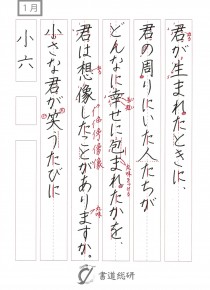 1月
小六
君が生まれたときに、
君の周りにいた人たちが
どんなに幸せに包まれたかを、
君は想像したことがありますか。
小さな君が笑うたびに
書道総研